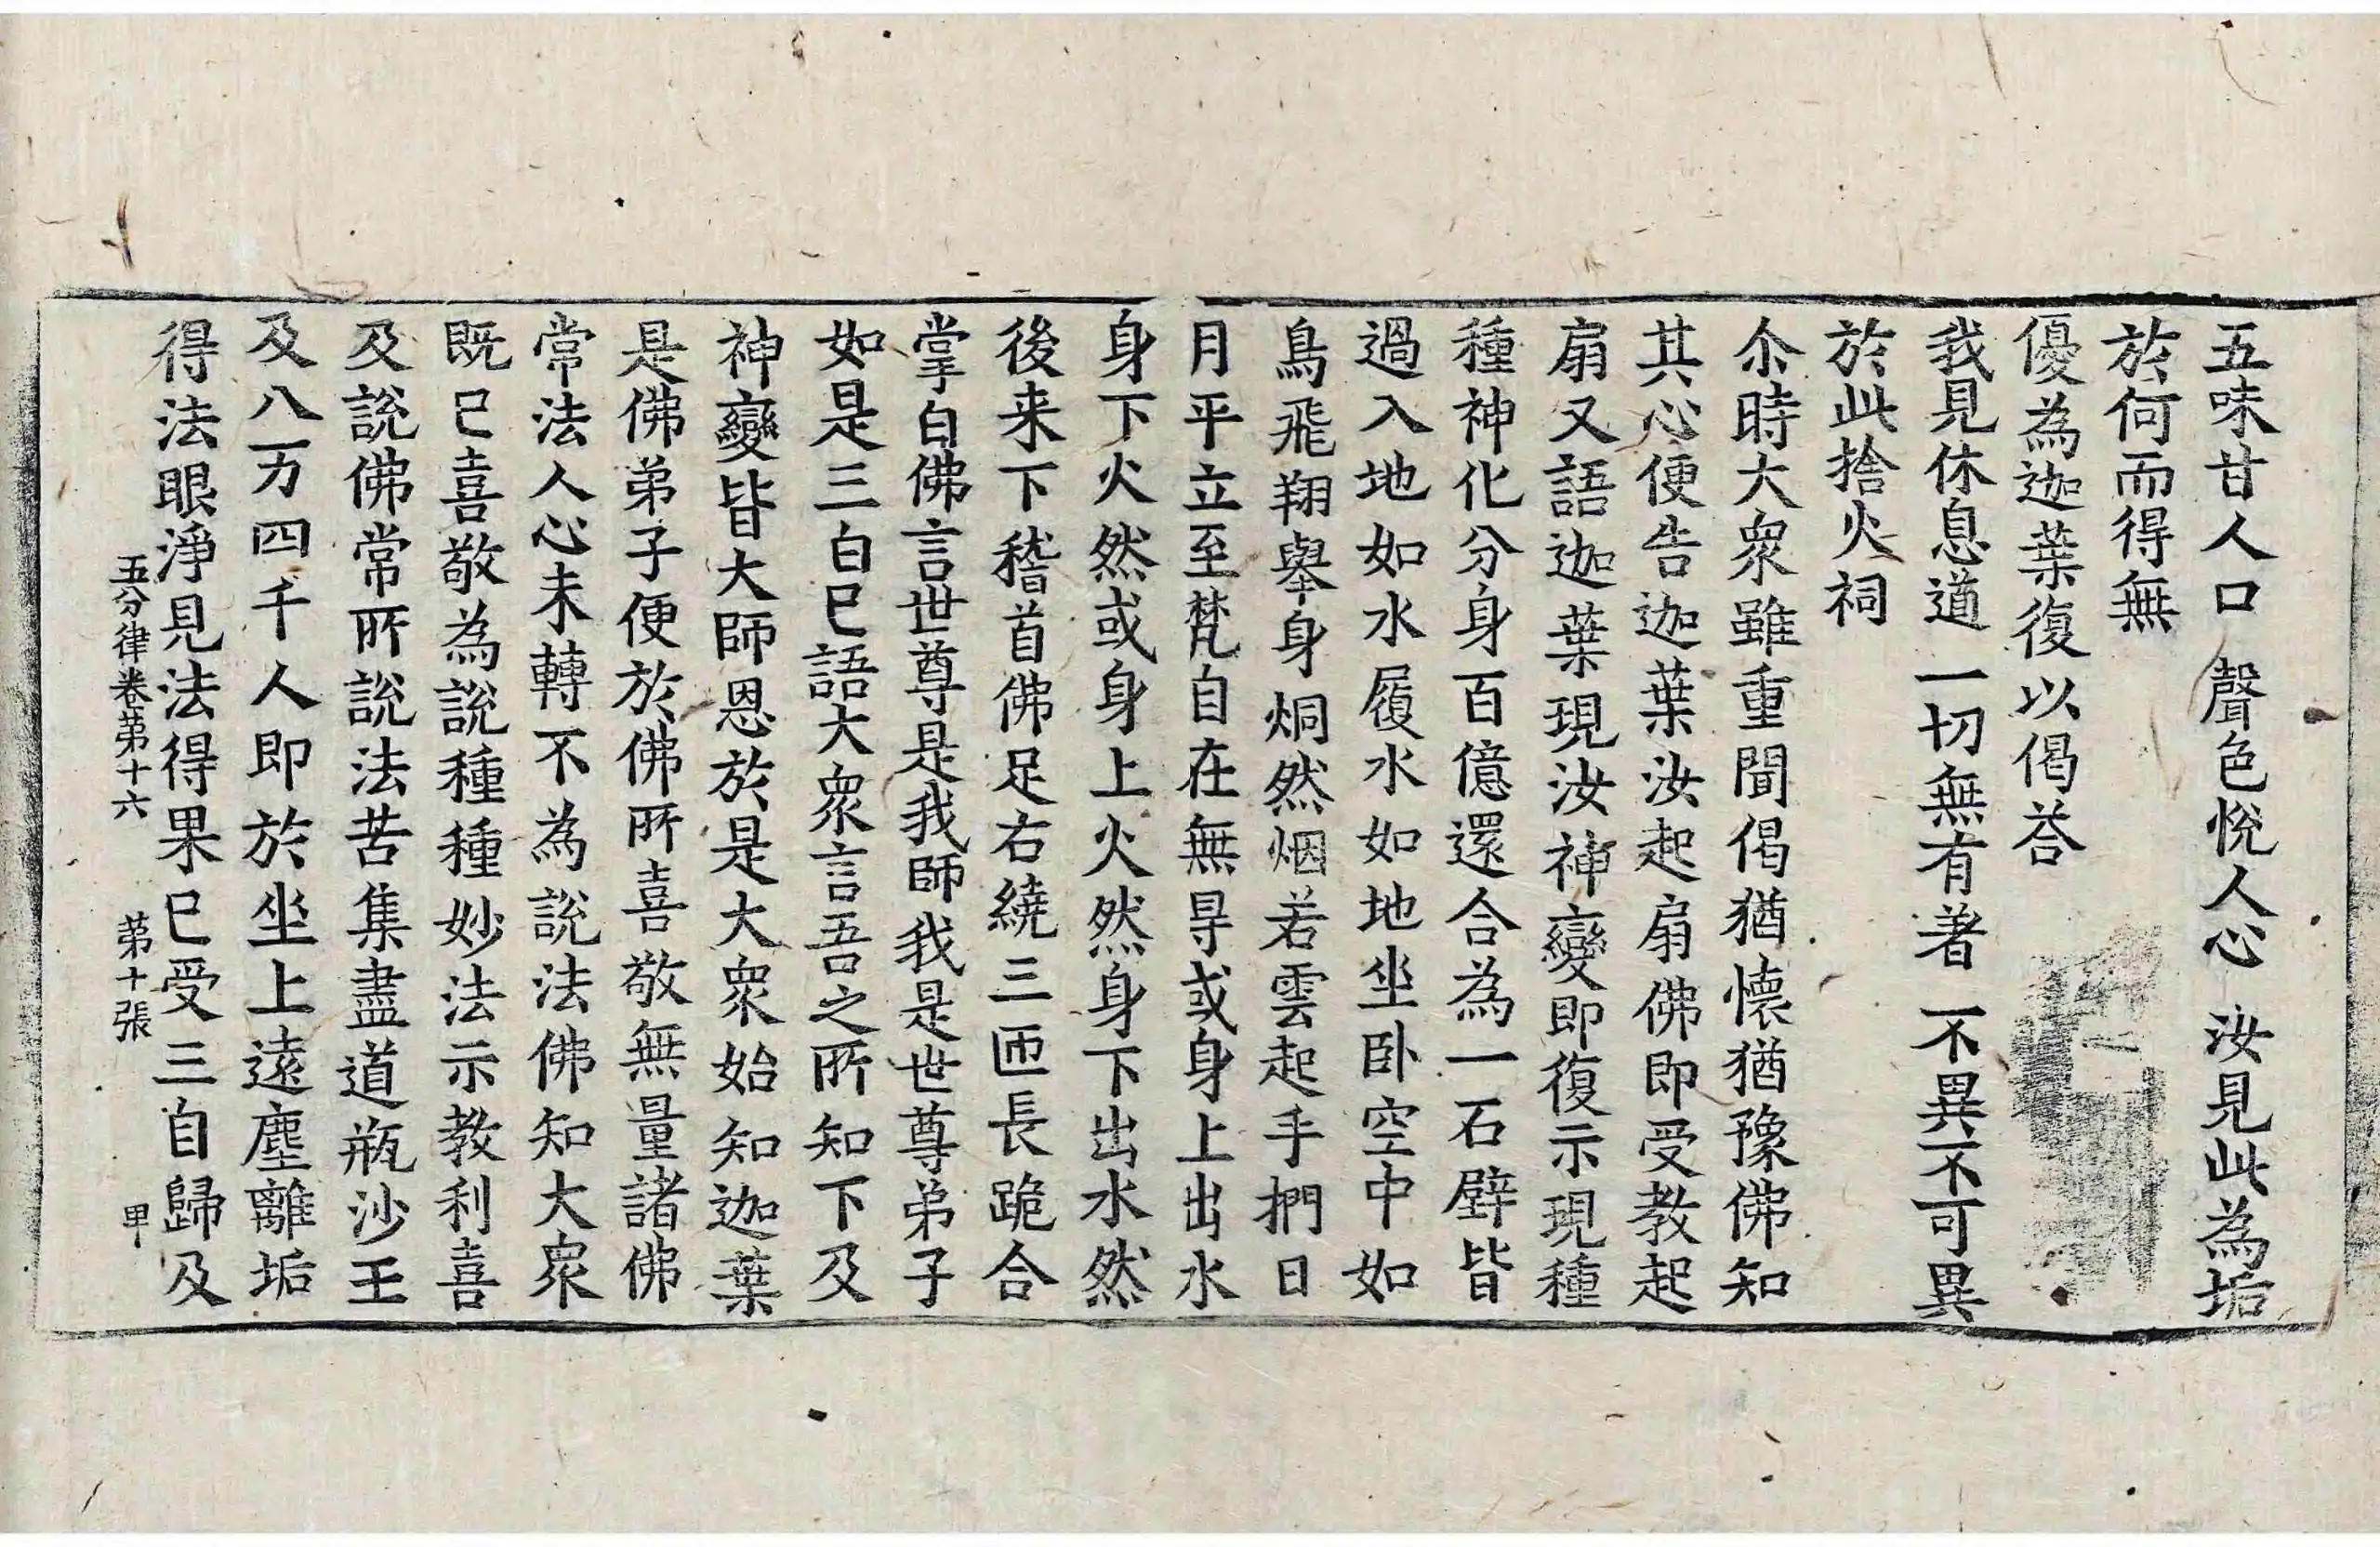 五味甘人口　聲色悅人心　汝見此為垢
於何而得無
優為迦葉復以偈荅
我見休息道　一切無有著　不異不可異
於此捨火祠
尒時大衆雖重聞偈猶懷猶豫佛知
其心便告迦葉汝起扇佛即受教起
扇又語迦葉現汝神變即復示現種
種神化分身百億還合為一石壁皆
過入地如水履水如地坐卧空中如
鳥飛翔舉身烔然烟若雲起手捫日
月平立至梵自在無㝵或身上出水
身下火然或身上火然身下出水然
後来下稽首佛足右繞三匝長跪合
掌白佛言世尊是我師我是世尊弟子
如是三白已語大衆言吾之所知下及
神變皆大師恩於是大衆始知迦葉
是佛弟子便於佛所喜敬無量諸佛
常法人心未轉不為說法佛知大衆
既已喜敬為說種種妙法示教利喜
及說佛常所說法苦集盡道瓶沙王
及八万四千人即於坐上遠塵離垢
得法眼淨見法得果已受三自歸及
五分律卷第十六　第十張　甲